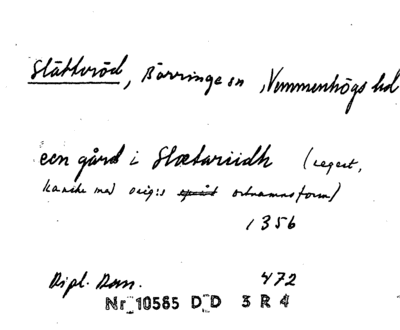 Slättröd, Börringe sn, Vemmenhögs hd
een gård i Slætariidh (regest,
kanske med orig:s ortnamnsform)
1356
Dipl. Dan. 472
Nr 10585 D D 3 R 4